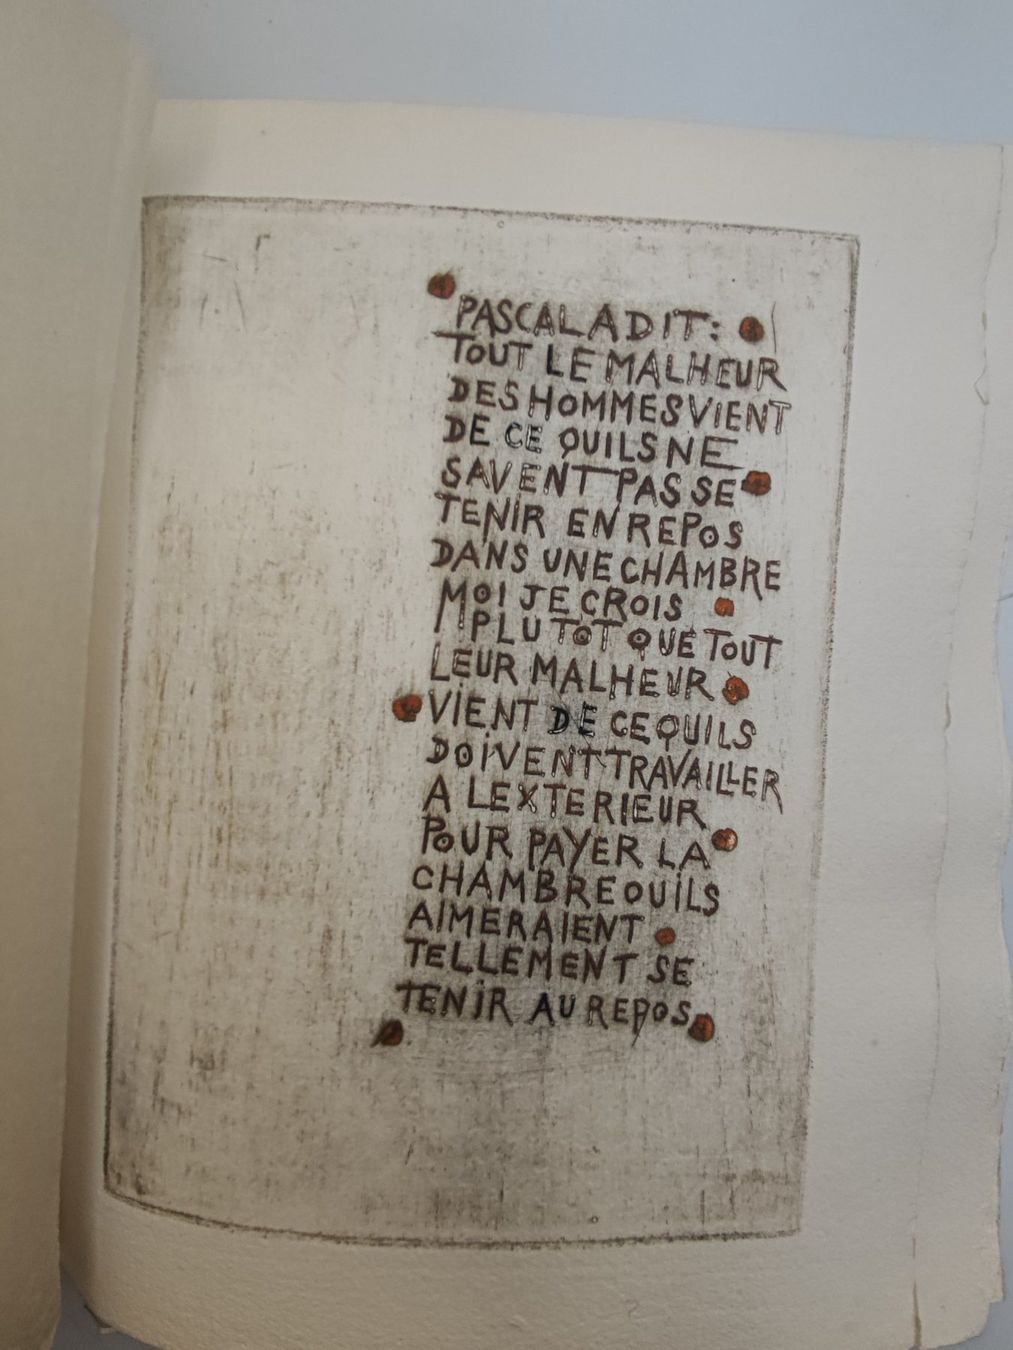 PASCAL A DIT:
TOUT LE MALHEUR
DES HOMMES VIENT
DE CE QUILS NE
SAVENT PAS SE
TENIR EN REPOS
DANS UNE CHAMBRE
MOI JE CROIS
PLUTOT QUE TOUT
LEUR MALHEUR
VIENT DE CE QUILS
DOIVENT TRAVAILLER
A LEXTERIEUR
POUR PAYER LA
CHAMBRE OU ILS
AIMERAIENT
TELLEMENT SE
TENIR AU REPOS